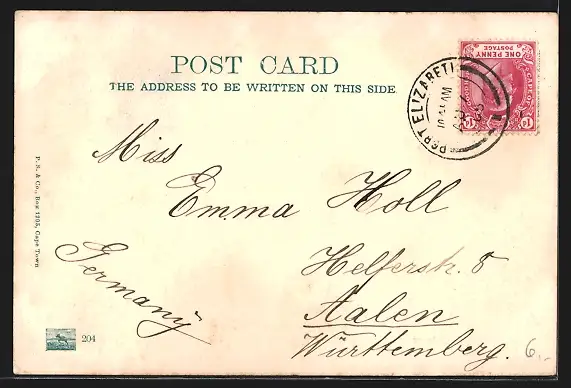 POST CARD
THE ADDRESS TO BE WRITTEN ON THIS SIDE
ONE PENNY
POSTAGE
PORT ELIZABETH
Miss
Emma Holl
Helferstr. 8
Aalen
Württemberg.
Germany
P. S. & Co., Box 1295, Cape Town
204
6.-